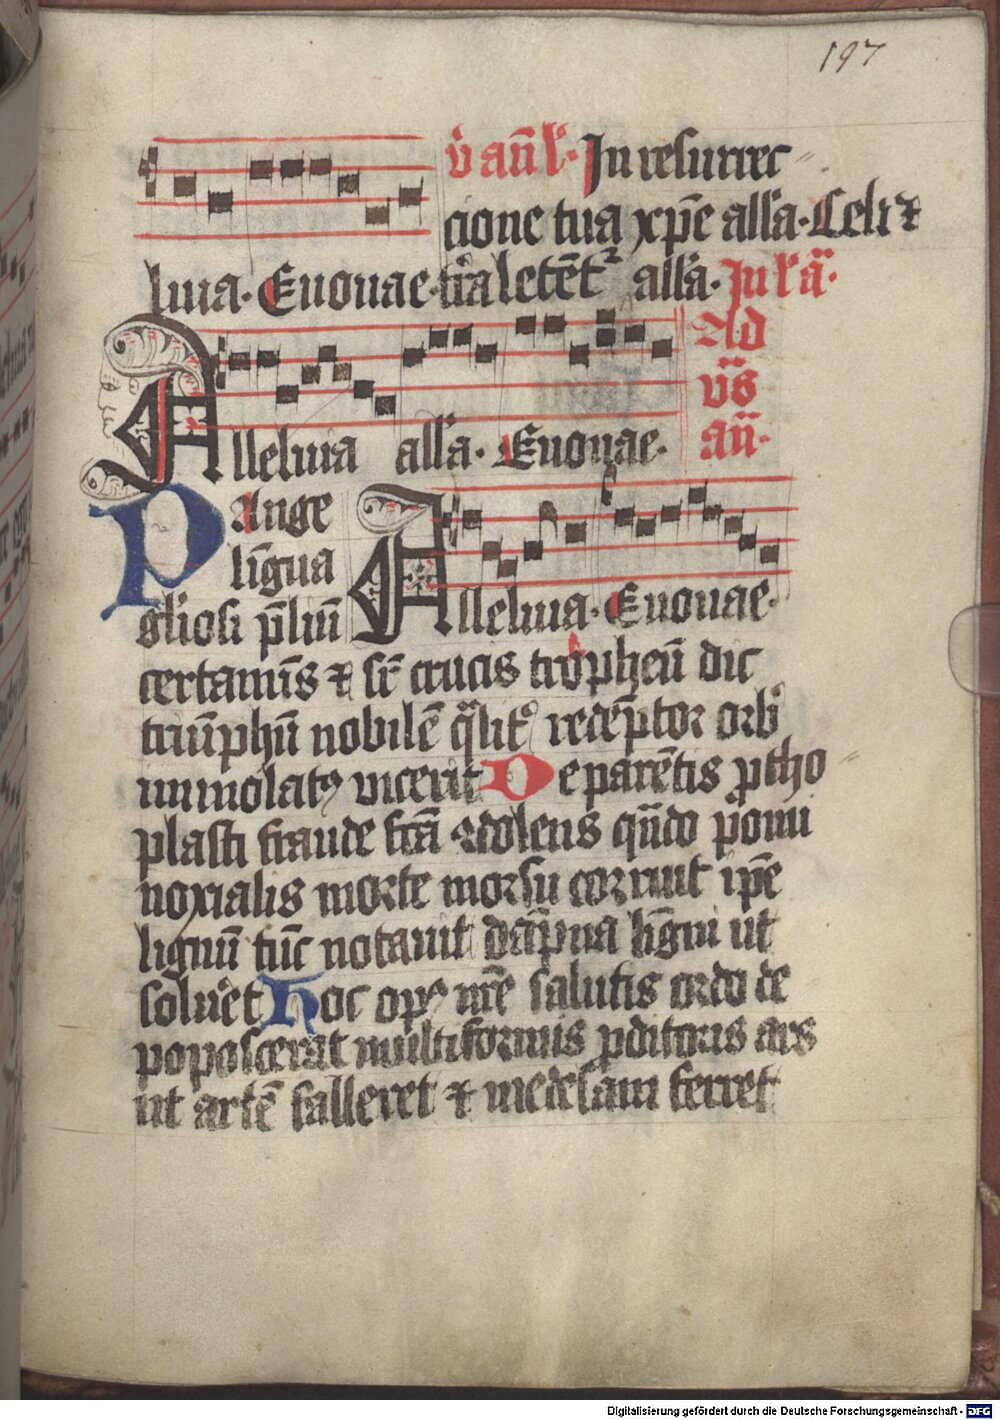 197
v̄ an̄ k̄. In resurrec
cione tua xp̄e all'a. Celi ⁊
luia. Euouae. t'ra letēt' all'a. In l'a.
Ad
v̄s
an̄.
Alleluia all'a. Euouae.
Pange
lī̄gua
Alleluia. Euouae.
gl'iosi p̄liū
certamīs ⁊ sr̄ crucis tropheū dic
triūphū nobilē q̄lit' redēptor orb'
immolat' vicerit De parētis ptho
plasti fraude fc̄ā 9dolens qn̄do pomi
noxialis morte morsu corruit ip̄e
lignū tūc notauit dāpna lig̅ni ut
soluēt Hoc op' nr̄e salutis ordo de
poposcerat multiformis pditoris ars
ut artē falleret ⁊ medelam ferret
Digitalisierung gefördert durch die Deutsche Forschungsgemeinschaft - DFG